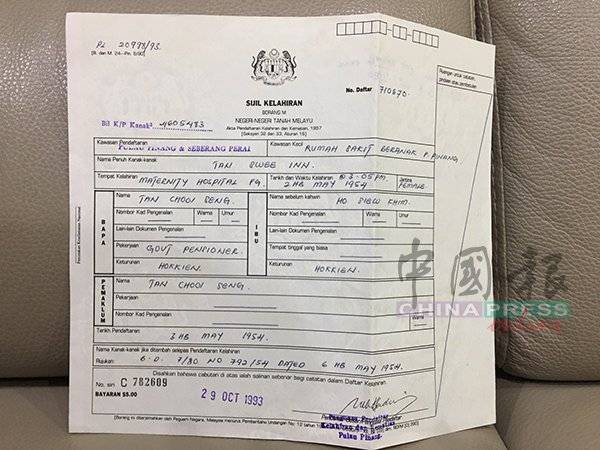 PL 20978/93.
No. Daftar 710670.
SIJIL KELAHIRAN
BORANG M
NEGERI-NEGERI TANAH MELAYU
Akta Pendaftaran Kelahiran dan Kematian, 1957
Bil K/P Kanak2 4605483
Kawasan Pendaftaran
PULAU PINANG & SEBERANG PERAI
Kawasan Kecil
RUMAH SAKIT BERANAK P. PINANG
Nama Penuh Kanak-kanak
TAN SWEE INN.
Tempat Kelahiran
MATERNITY HOSPITAL PG.
Tarikh dan Waktu Kelahiran @ 3-05PM.
2HB MAY 1954
Jantina
FEMALE.
BAPA
Nama
TAN CHOOI SENG.
Nombor Kad Pengenalan Warna Umur
Lain-lain Dokumen Pengenalan
Pekerjaan
GOVT PENSIONER.
Keturunan
HOKKIEN.
IBU
Nama sebelum kahwin
HO SIEW KHIM.
Nombor Kad Pengenalan Warna Umur
Lain-lain Dokumen Pengenalan
Tempat tinggal yang biasa
Keturunan
HOKKIEN.
PEMAKLUM
Nama
TAN CHOOI SENG.
Pekerjaan
Nombor Kad Pengenalan Warna
Tarikh Pendaftaran
3HB MAY 1954.
Nama Kanak-kanak jika ditambah selepas Pendaftaran Kelahiran
Rujukan: B.D. 7/30 NO 792/54 DATED 6HB MAY 1954.
Disahkan bahawa cabutan di atas ialah salinan sebenar bagi catatan dalam Daftar Kelahiran.
No. siri C 782609
BAYARAN $5.00
29 OCT 1993
Kelahiran dan Kematian
Pulau Pinang.
中國報
CHINA PRESS